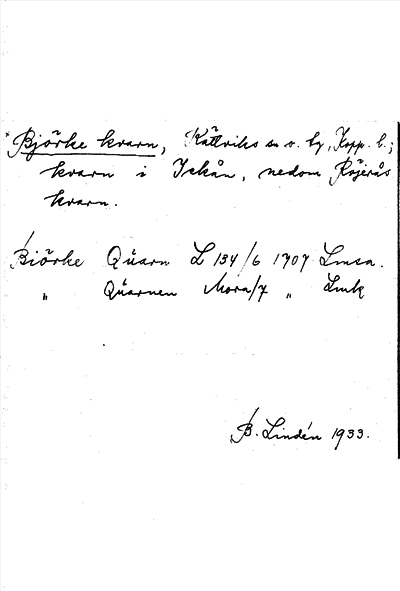 Bjørke kvarn, Rättviks sn o. by, Kopp. l.;
kvarn i Ickån, nedom Röjerås
kvarn.
Biörke Qŭarn L 134/6 1707 Lmsa.
„ Qŭarnen Mora/7 „ Lmk
B. Lindén 1933.